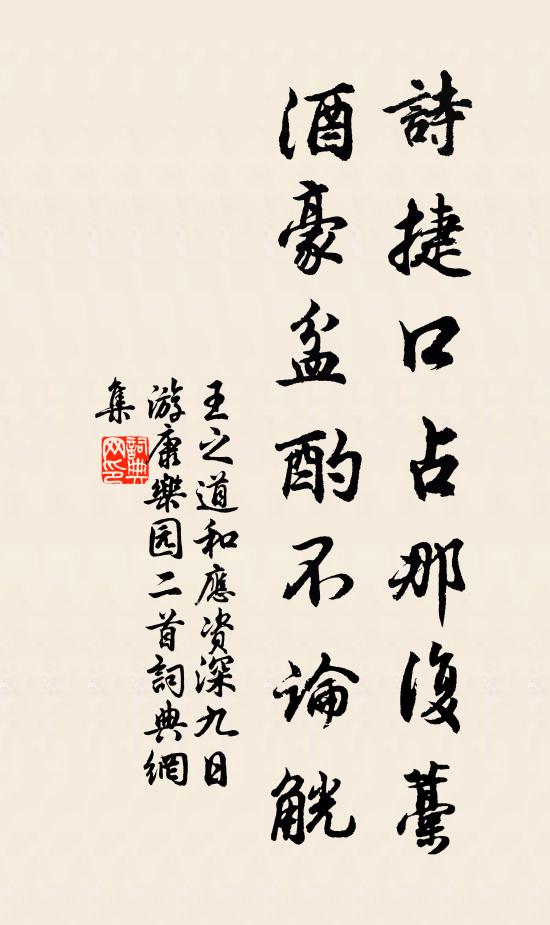 詩捷口占那復藁
酒豪盆酌不論觥
王之道和應资深九日
游康樂园二首詞典網
集
詞典網印